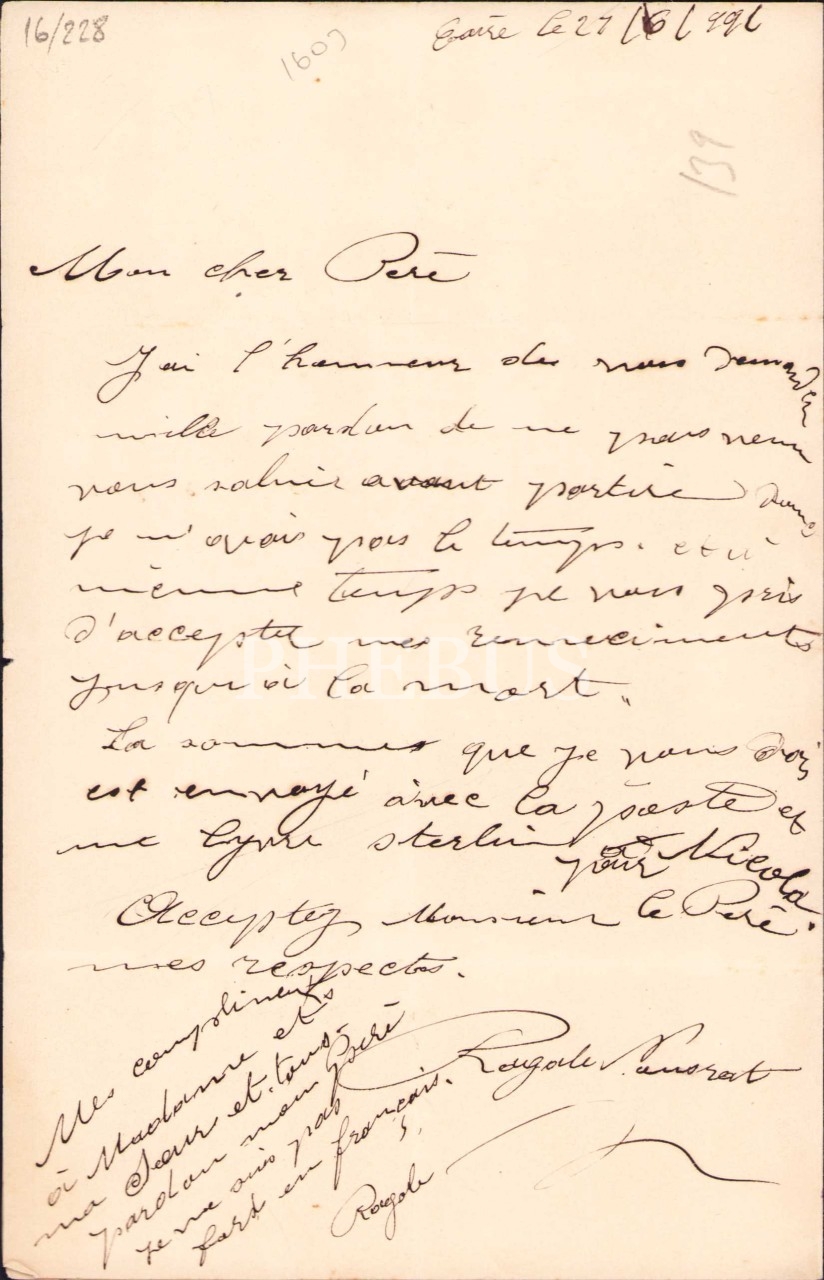 16/228
1609
Caire le 27/6/991
139
Mon cher Peré
J'ai l'honneur des vous demander
mille pardon de ne pas venu
vous saluir avant partire
je n'avais pas le temps. et
même temps je vous pris
d'accepter mes remerciments
jusqu'à la mort.
La sommes que je vous dois
est envoyé avec la poste et
une lyvre sterlin pour Nicola.
Acceptez Monsieur le Peré
mes respects.
Ragale
Mes compliments
à Madame et
ma Sœur et tous.
pardon mon Peré
je ne suis pas
fort en français.
Ragale
PHEBUS